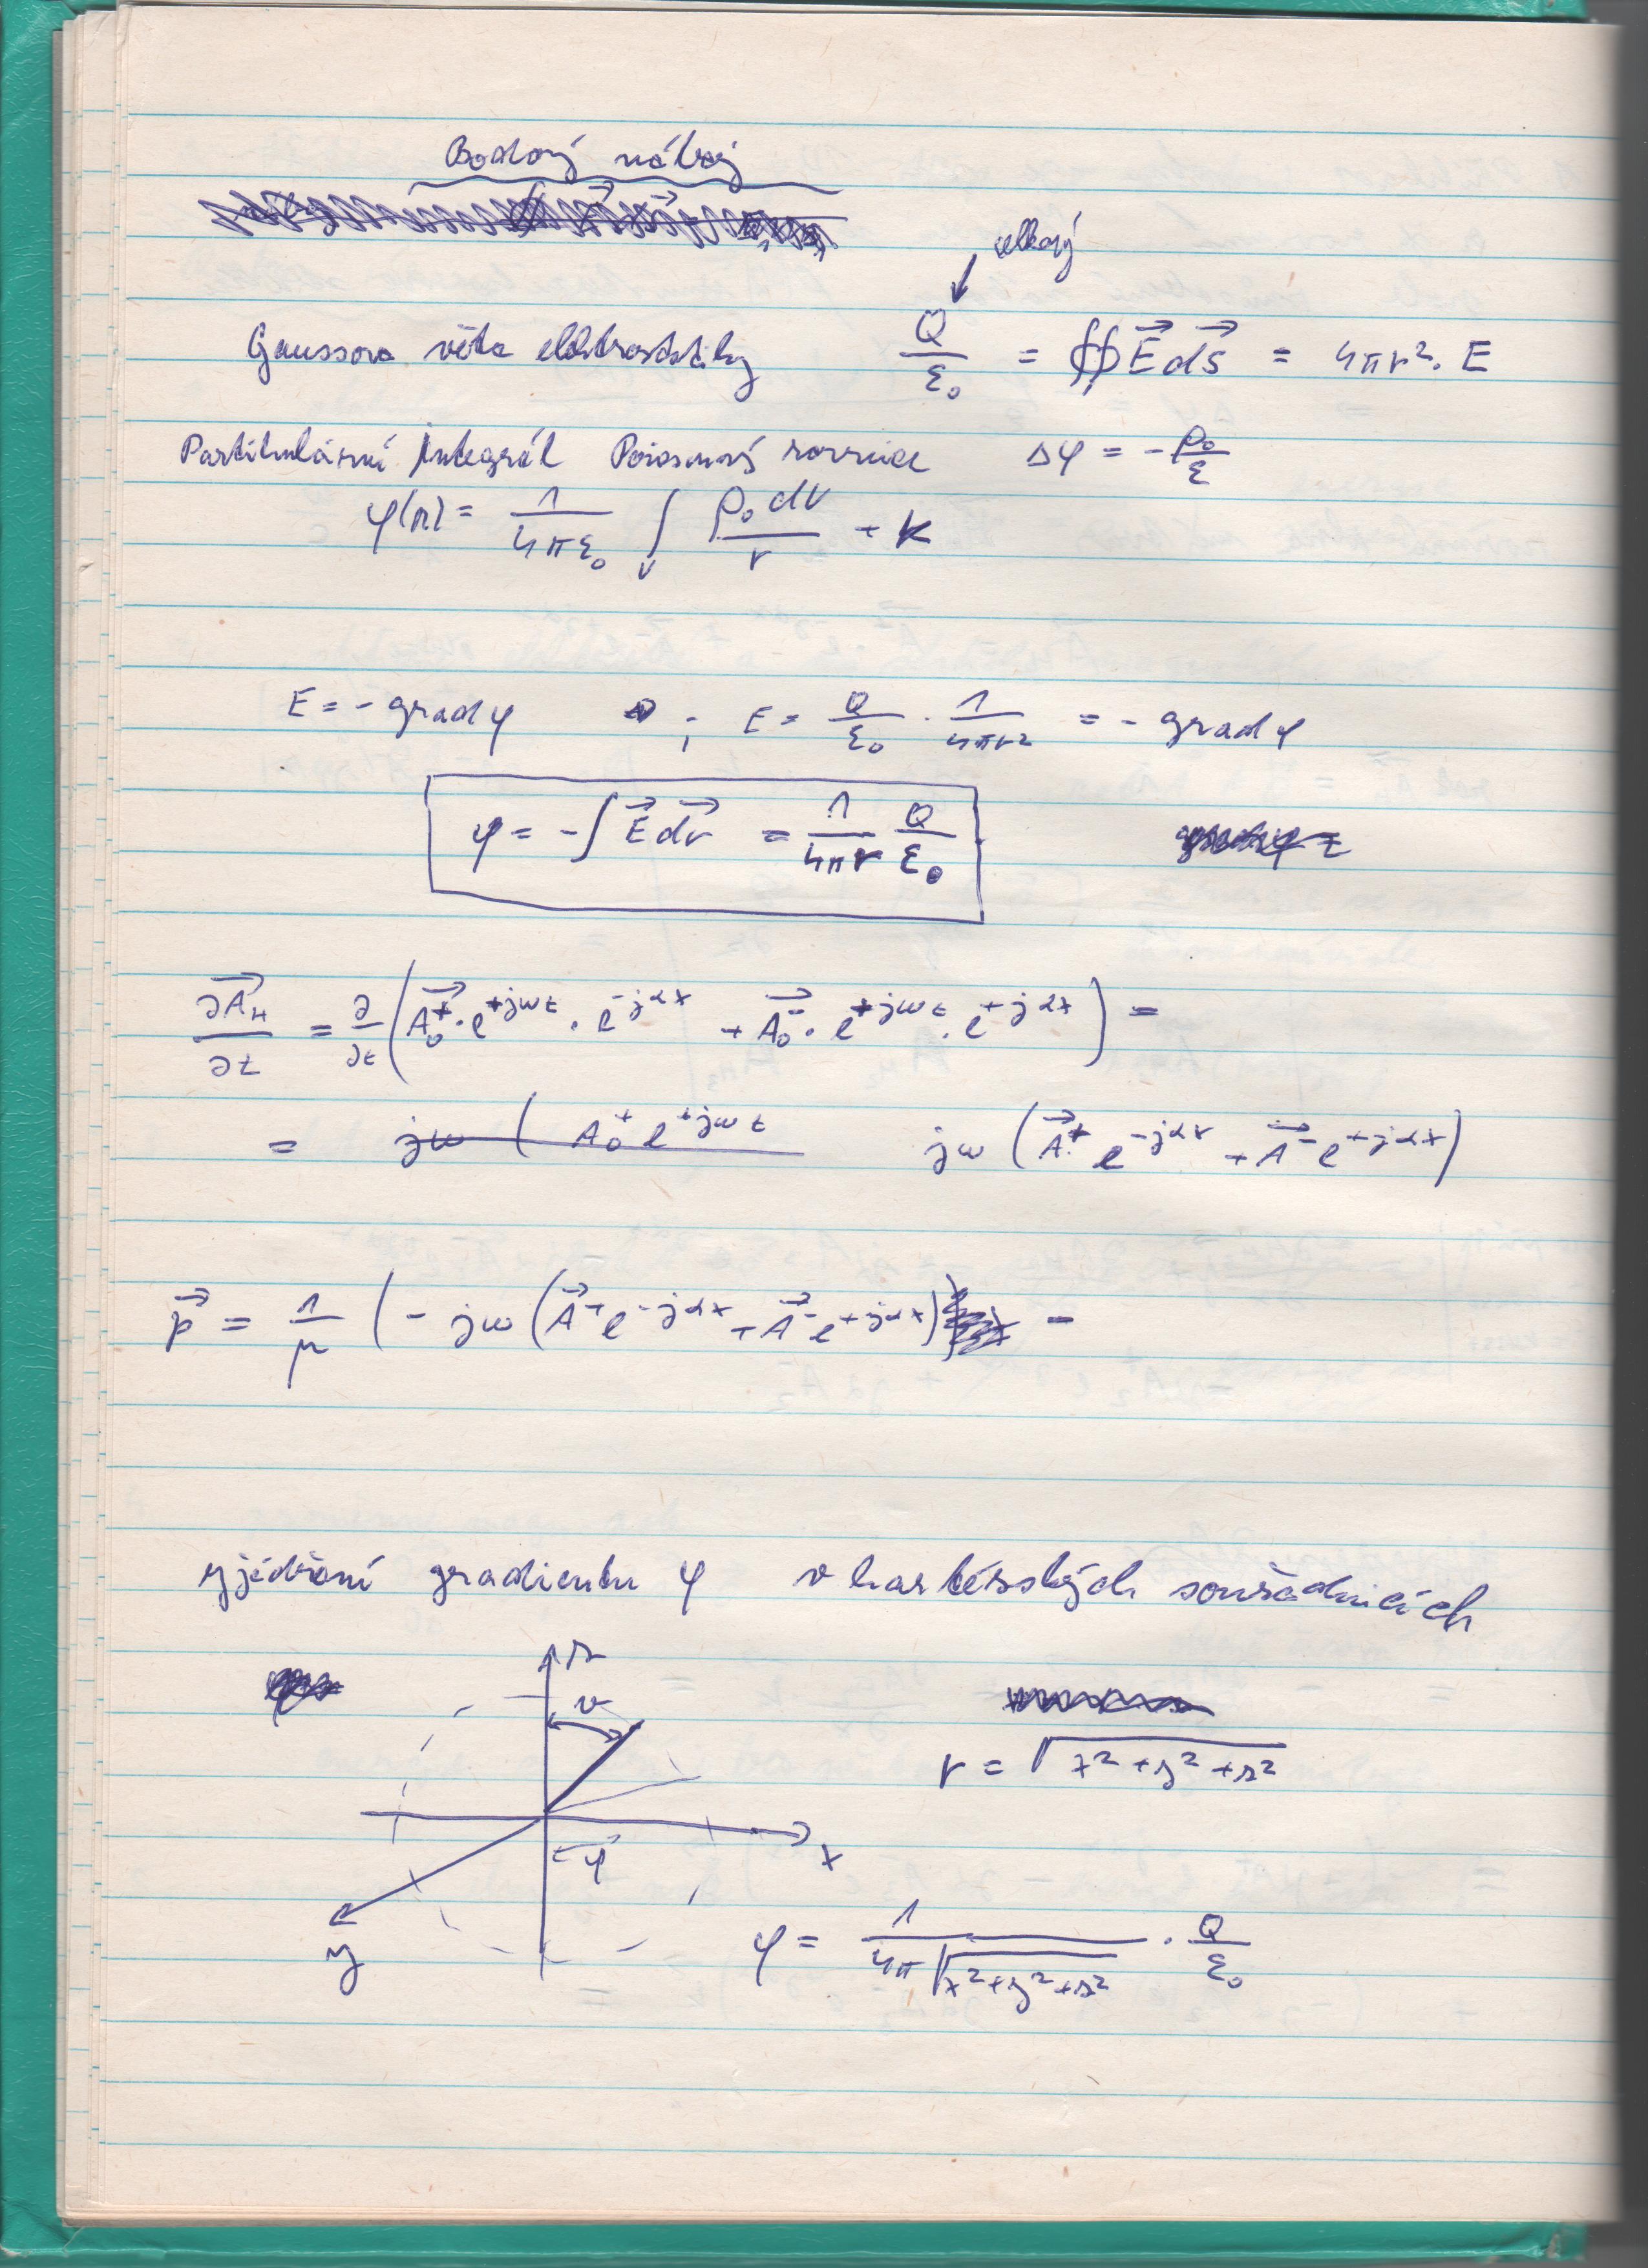 Bodový náboj
celkový
Gaussova věta elektrostatiky Q/ε₀ = ∯ E⃗ dS⃗ = 4πr². E
Partikulární integrál Poissonovy rovnice Δφ = -ρ₀/ε
φ(r) = 1/(4πε₀) ∫_V ρ₀ dV/r + K
E = - grad φ ; E = Q/ε₀ · 1/(4πr²) = - grad φ
φ = -∫ E⃗ dr⃗ = 1/(4πr) Q/ε₀
∂A⃗_H/∂t = ∂/∂t (A⃗₀⁺ · e^{+jωt} · e^{-jαx} + A⃗₀⁻ · e^{+jωt} · e^{+jαx}) =
= jω ( A₀⁺ e^{+jωt} jω (A⃗⁺ e^{-jαx} + A⃗⁻ e^{+jαx})
p⃗ = 1/μ (- jω (A⃗⁺ e^{-jαx} + A⃗⁻ e^{+jαx}) -
vyjádření gradientu φ v kartézských souřadnicích
z
ϑ
r = √(x² + y² + z²)
x
φ
y
φ = 1/(4π√(x²+y²+z²)) · Q/ε₀